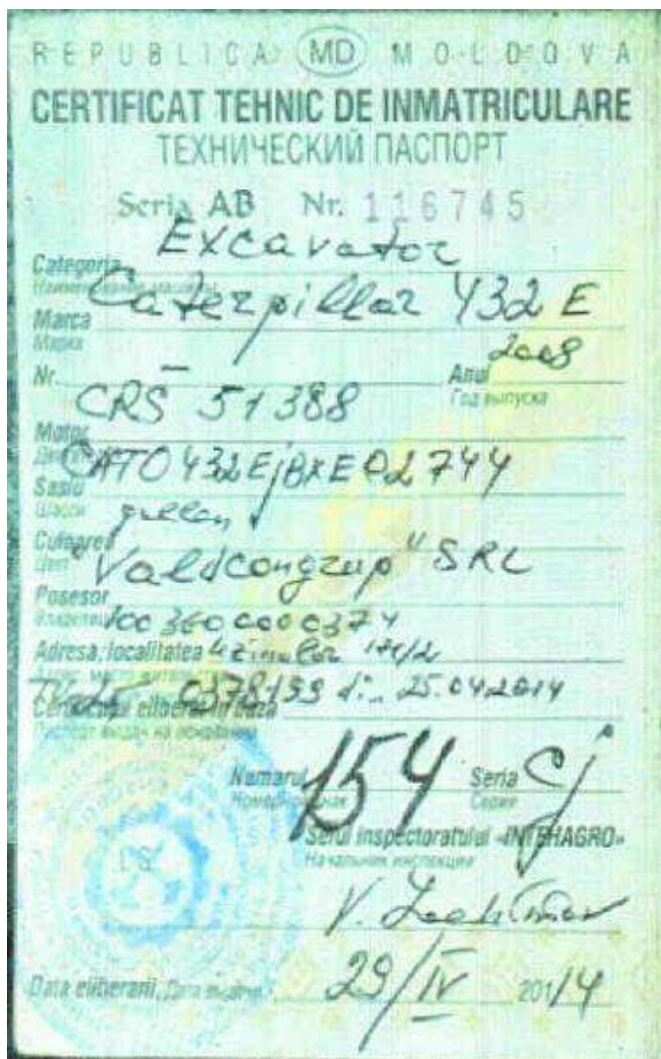 REPUBLICA MD MOLDOVA
CERTIFICAT TEHNIC DE INMATRICULARE
ТЕХНИЧЕСКИЙ ПАСПОРТ
Seria AB Nr. 116745
Excavator
Categoria
Наименование машины
Caterpillar 432 E
Marca
Марка
2008
Nr. — Anul
Год выпуска
CRS 51388
Motor
CAT0432EjBXE02744
Sasiu
Шасси
galben
Culoarea
Цвет
"Valdcongrup" SRL
Posesor
Владелец
1003600000374
Adresa, localitatea Uzinelor 171/2
0378199 din 25.04.2014
Certificatul eliberat in baza
Паспорт выдан на основании
Numarul 154 Seria Cj
Номерной знак Серия
Seful inspectoratului «INTEHAGRO»
Начальник инспекции
LS
V.
29/IV 2014
Data eliberarii, Дата выдачи